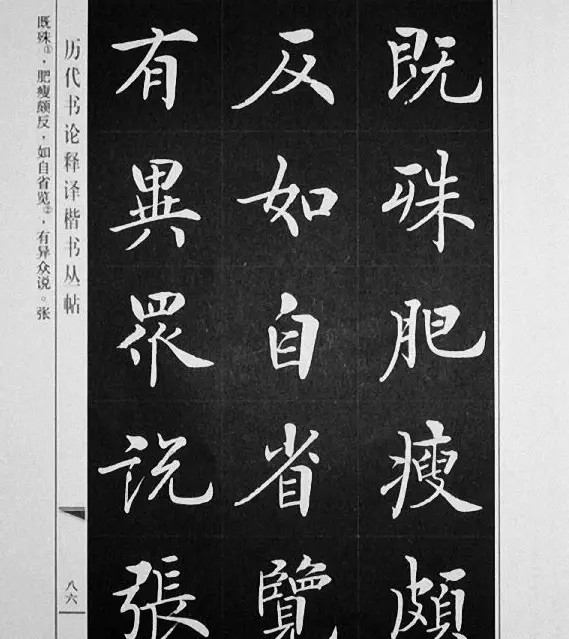 既殊肥瘦頗
反如自省覽
有異眾説張
历代书论释译楷书丛帖
八六
既殊①，肥瘦颇反，如自省览②，有异众说。张